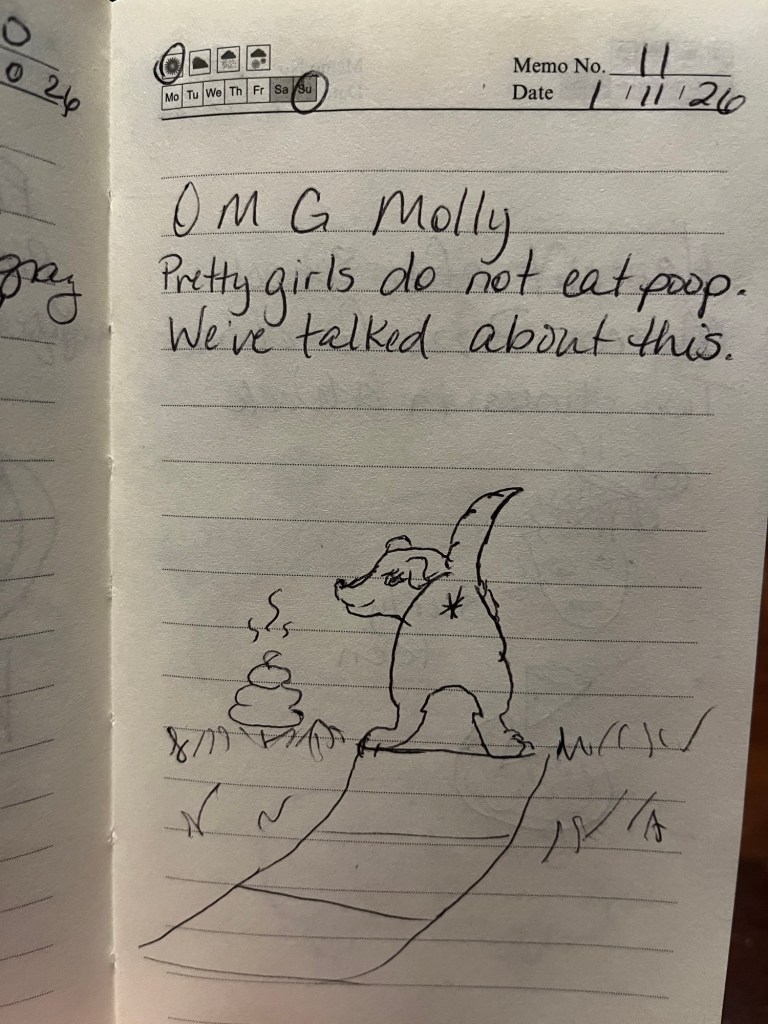 0
0 26
Mo Tu We Th Fr Sa Su
Memo No. 11
Date 1 / 11 / 26
gray
OMG Molly
Pretty girls do not eat poop.
We've talked about this.